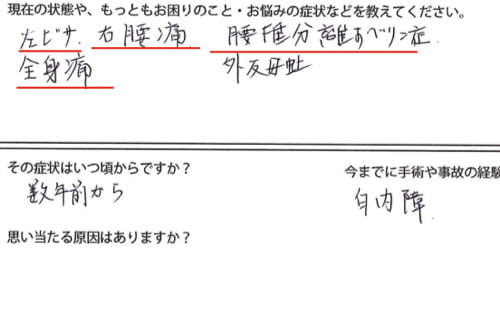 現在の状態や、もっともお困りのこと・お悩みの症状などを教えてください。
左ヒザ 右腰痛 腰椎分離すべり症
全身痛 外反母趾
その症状はいつ頃からですか？ 今までに手術や事故の経験
数年前から 白内障
思い当たる原因はありますか？